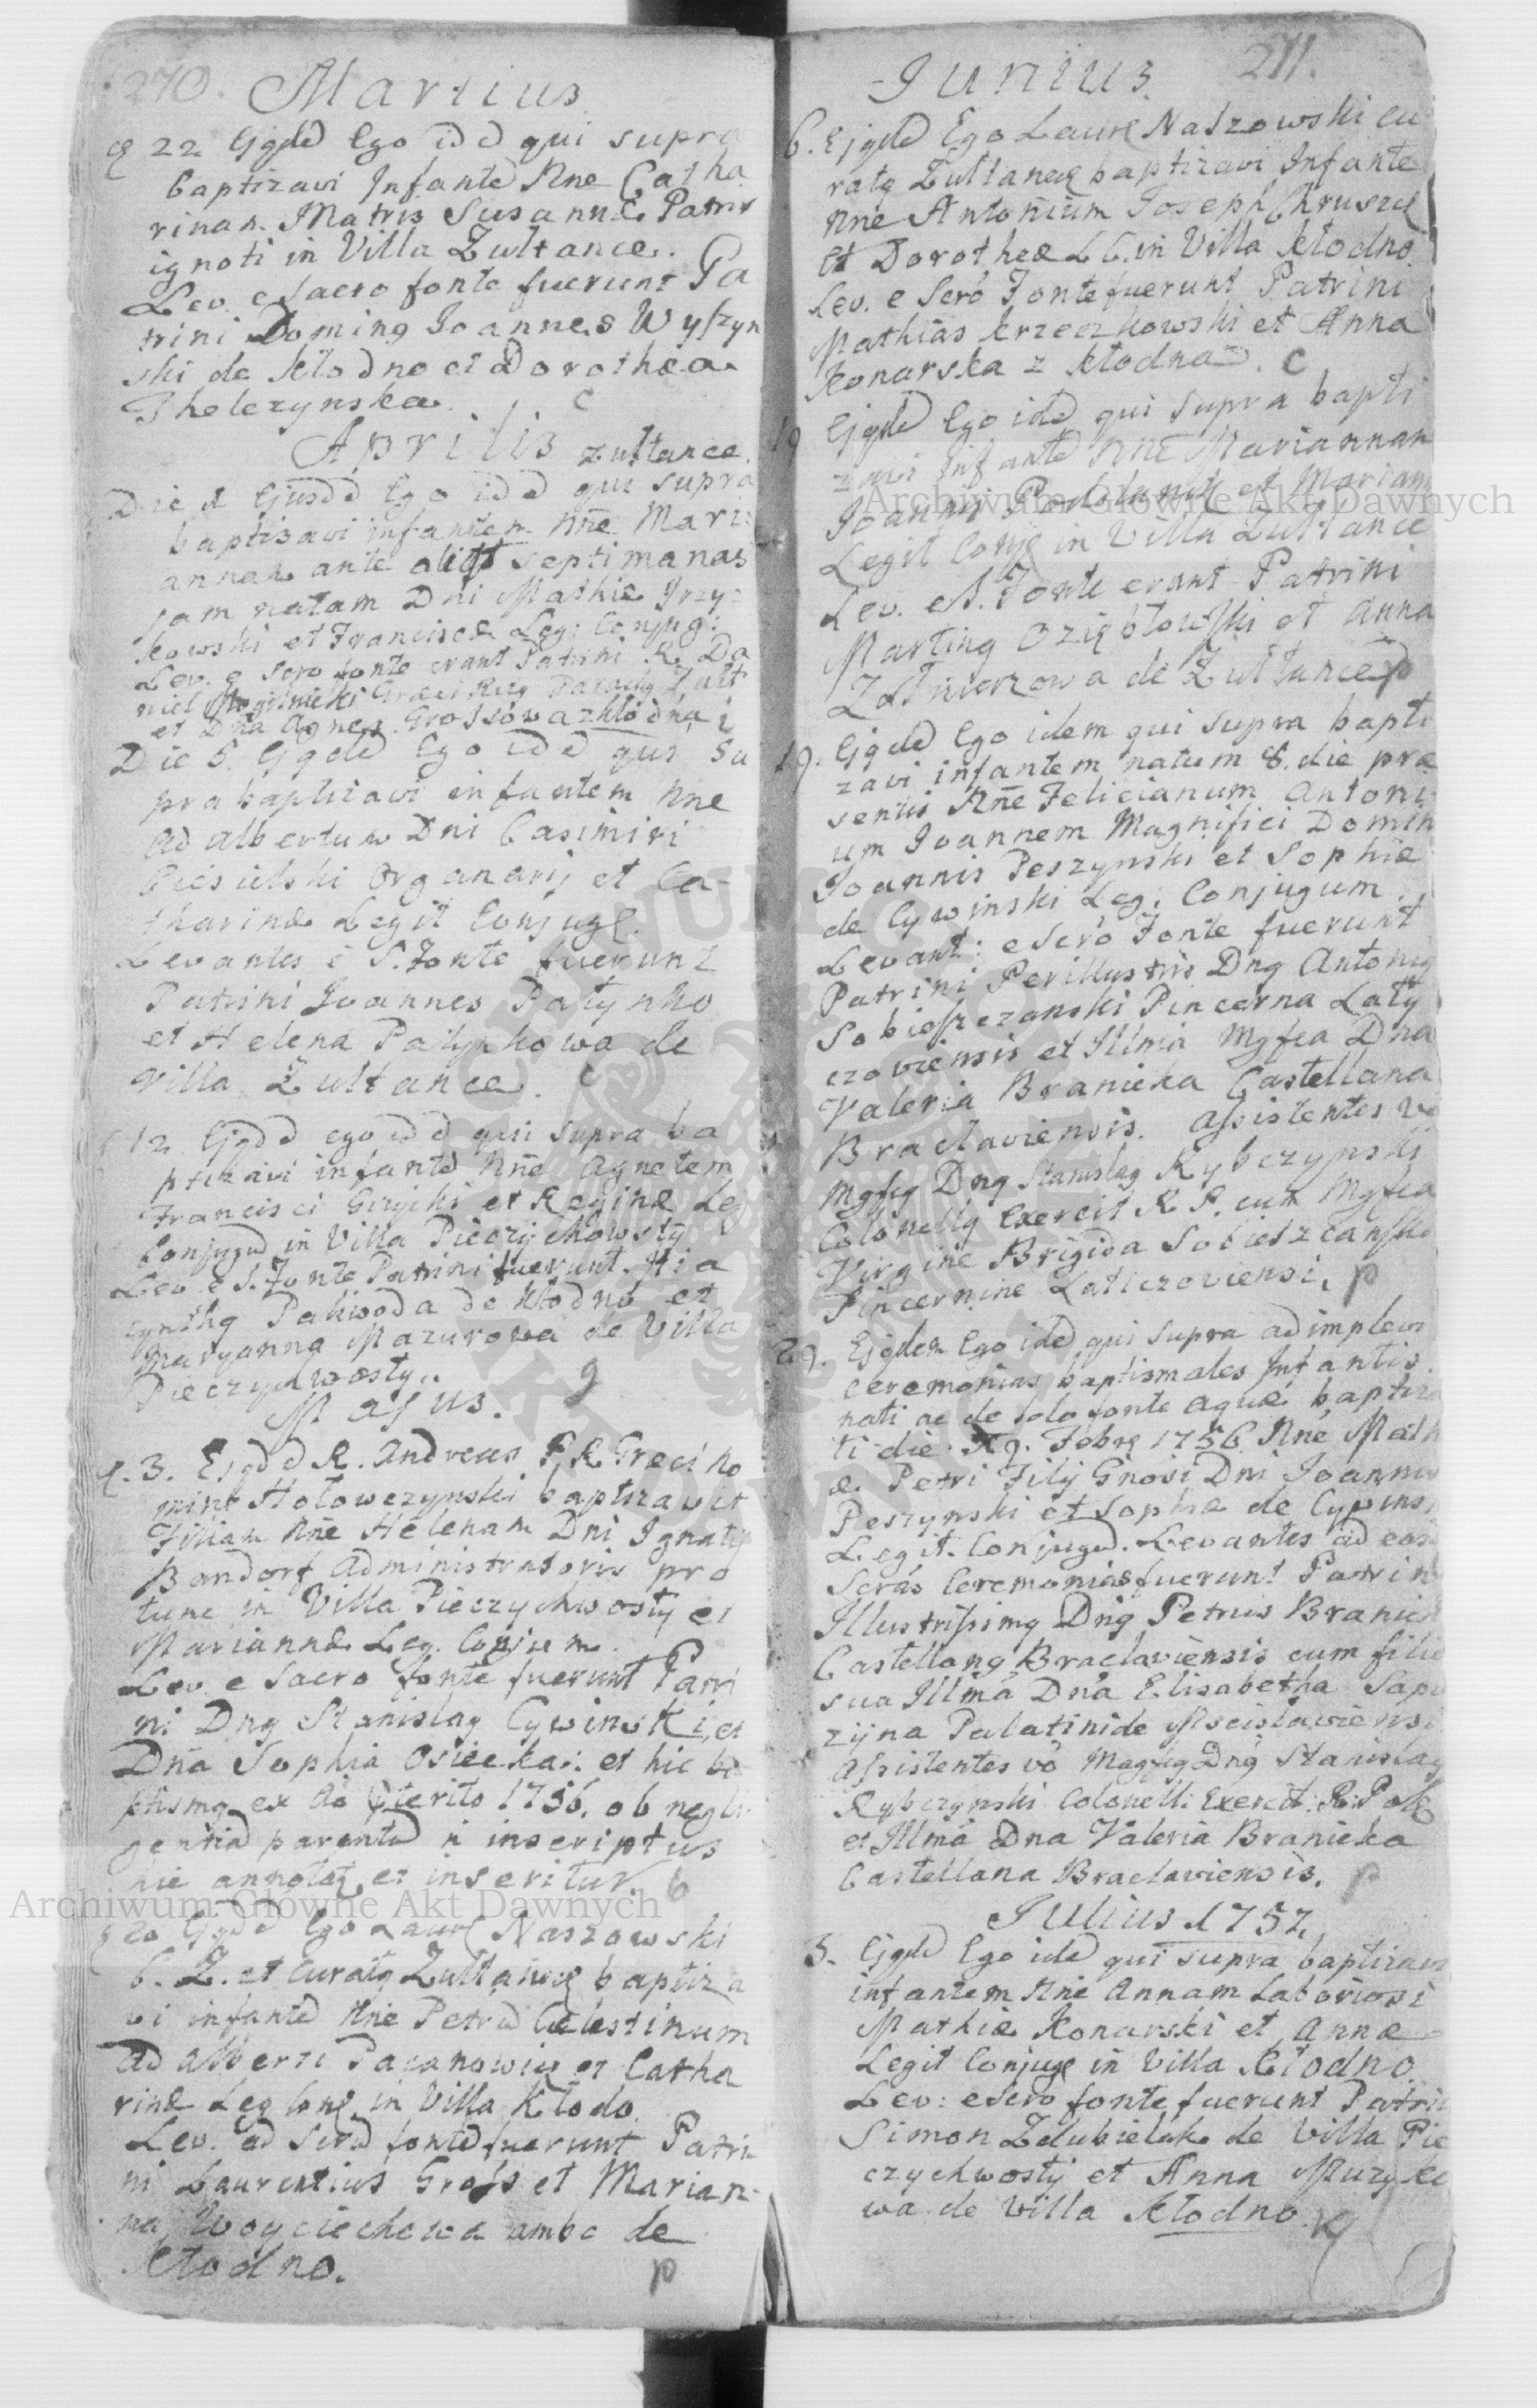 270. Martius
22 Ejqdd Ego idd qui supra
baptizavi Infantd Nne Catha
rinam. Matris Susannæ Patris
ignoti in Villa Zultance.
Lev. e Sacro fonte fuerunt Pa
trini Doming Joannes Wyszyn
ski de Kłodno et Dorothea
C
Aprilis Zułtance
Die Ejusdd Ego idd qui supra
baptizavi infantem Nne Mari:
annam ante septimanas
jam natam Dni Mathiæ
kowski et Franciscæ Leg: Conjug:
Lev. e Scro fonte erant Patrini R. Da
niel Zułt
et Dna Agnes Grossowa z Kłodna
Die 5. Ejqdd Ego idd qui Su
pra baptizavi infantem Nne
Adalbertum Dni Casimiri
Ciesielski Organarij et Ca-
tharinæ Legit Conjugę.
Levantes é S. Fonte fuerunt
Patrini Joannes Patynko
et Helena Patynkowa de
Villa Zultance. C
12 Ejqdd ego idd qui supra ba
ptizavi infantd Nne Agnetem
Francisci et Reginæ Leg
Conjugd in Villa Pieczychwosty
Lev e S. Fonte Patrini fuerunt. Hia
cynthq Pakwoda de Kłodno et
Maryanna Mazurowa de Villa
Pieczychwosty.
Majus.
3. Ejqdd R. Andreas
Hołowczynski baptizavit
Filiam Nne Helenam Dni Ignatij
Bandorf Administratoris pro
tunc in Villa Pieczychwosty et
Mariannæ Leg. Conjum.
Lev. e Sacro fonte fuerunt Patri
ni Dnq Stanislaq Cywinski, et
Dna Sophia Osiecka: et hic ba
ptismq ex Ao pterito 1756. ob negli
gentiad parentd ñ inscriptus
hic annotatq et inseritur. b
20 Ejqdd Ego Laurę Naszowski
C. Z. et Curatq Zułtancę baptiza
vi infantd Nne Petrd Cælestinum
Adalberti Pacanowicz et Catha
rinæ Leg Conę in Villa Kłodo.
Lev. ad Scrd fontd fuerunt Patri
ni Laurentius Gross et Marian-
na Woyciechowa ambo de
Kłodno. p
Junius. 271.
6. Ejqdd Ego Laurę Naszowski Cu
ratq Zułtancę baptizavi Infante
Nne Antonium Joseph Chruscz
et Dorotheæ L C. in Villa Kłodno.
Lev. e Scro Fonte fuerunt Patrini
Mathias Krzeczkowski et Anna
Konarska z Kłodna. C
Ejqdd Ego idd qui supra bapti
zavi Infantd Nne Mariannam
Joannis et Mariann
Legit Conję in Villa Zultance
Lev. e S. Fonte erant Patrini
Martinq Oziębłowski et Anna
Zołnierzowa de Zultance p
19. Ejqdd Ego idem qui supra bapti
zavi infantem natum 8. die præ
sentis Nne Felicianum Antoni
um Joannem Magnifici Domin
Joannis Peszynski et Sophiæ
de Cywinski Leg: Conjugum.
Levant: e Scro Fonte fuerunt
Patrini Perillustris Dnq Antoniq
Sobieszczanski Pincerna Laty
czoviensis et Illma Mgfca Dna
Valeria Branicka Castellana
Braclaviensis. Assistentes vo
Mgfcq Dnq Stanislaq Rybczynski
Colonellq Exercit R P. cum Mgfca
Virgine Brigida Sobieszczanska
Pincernine Laticzoviensi. p
29. Ejqdem Ego idd qui supra adimplevi
ceremonias baptismales Infantis
nati ac de solo fonte aquæ baptiza
ti die Febrę 1756 Nne Math
æ Petri Filij Gnosi Dni Joannis
Peszynski et Sophiæ de Cywinski
Legit. Conjugd. Levantes ad eas
Scras Ceremonias fuerunt Patrini
Illustrissimq Dnq Petrus Branick
Castellanq Braclaviensis cum filia
sua Illma Dna Elisabetha Sapi
zijna Palatinide Mscislaviensi
Assistentes vo Magfcq Dnq Stanislaq
Rybczynski Colonell: Exercit: R: Pol
et Illma Dna Valeria Branicka
Castellana Braclaviensis. p
Julius 1757
3. Ejqdd Ego idd qui supra baptizavi
infantem Nne Annam Laboriosi
Mathiæ Konarski et Annæ
Legit Conjugę in Villa Kłodno.
Lev: e Scro fonte fuerunt Patrini
Simon Zdubielak de Villa Pie
czychwosty et Anna Muzyko
wa de Villa Kłodno.
Archiwum Główne Akt Dawnych
Archiwum Główne Akt Dawnych